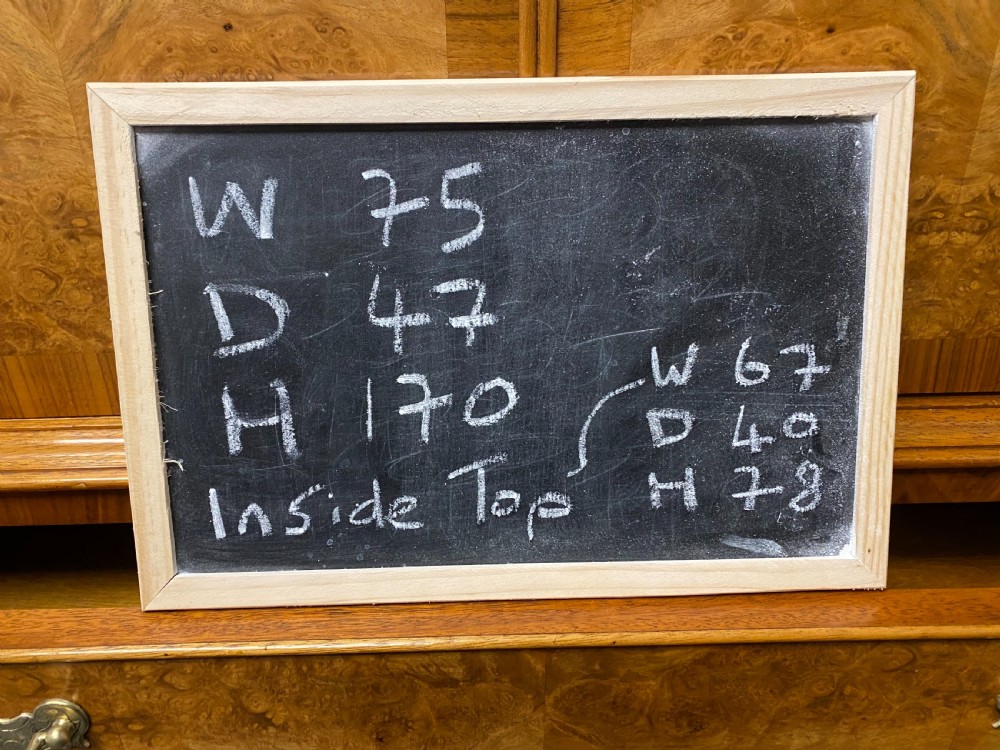 W 75
D 47
H 170
Inside Top
W 67
D 40
H 78